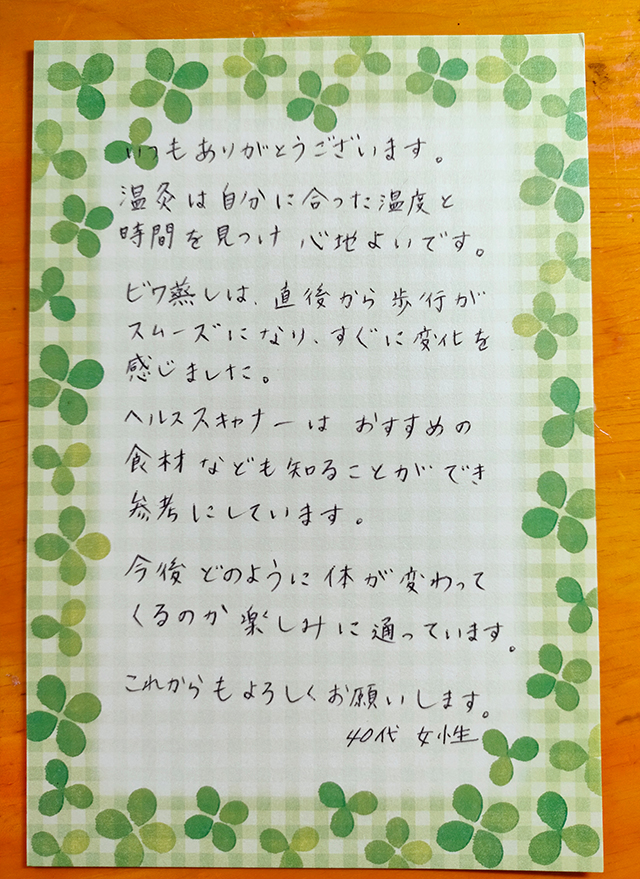 いつもありがとうございます。
温灸は自分に合った温度と
時間を見つけ 心地よいです。
ビワ蒸しは、直後から歩行が
スムーズになり、すぐに変化を
感じました。
ヘルススキャナーは おすすめの
食材なども知ることができ
参考にしています。
今後どのように体が変わって
くるのか楽しみに通っています。
これからもよろしくお願いします。
40代 女性